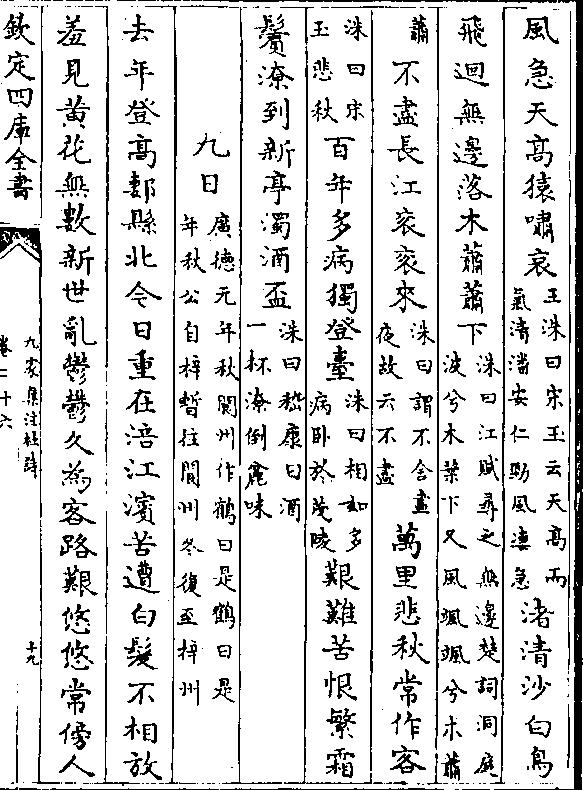 風急天高猿嘯哀王洙曰宋玉云天高而氣清潘安仁勁風淒急渚清沙白鳥
飛迴無邊落木蕭蕭下洙曰江賦尋之無邊楚詞洞庭波兮木葉下又風颯颯兮木蕭
蕭不盡長江衮衮來洙曰謂不舍晝夜故云不盡萬里悲秋常作客
洙曰宋玉悲秋百年多病獨登臺洙曰相如多病卧於茂陵艱難苦恨繁霜
鬢潦到新亭濁酒盃洙曰嵇康曰酒一杯潦倒麄味
九日廣德元年秋閬州作鶴曰是鶴曰是年秋公自梓暫往閬州冬復至梓州
去年登高郪縣北今日重在涪江濱苦遭白髮不相放
羞見黄花無數新世亂鬱鬱久為客路艱悠悠常傍人
欽定四庫全書
九家集注杜詩
卷二十六
十九